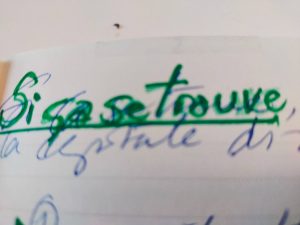 Si ça se trouve
la digitale di-
①